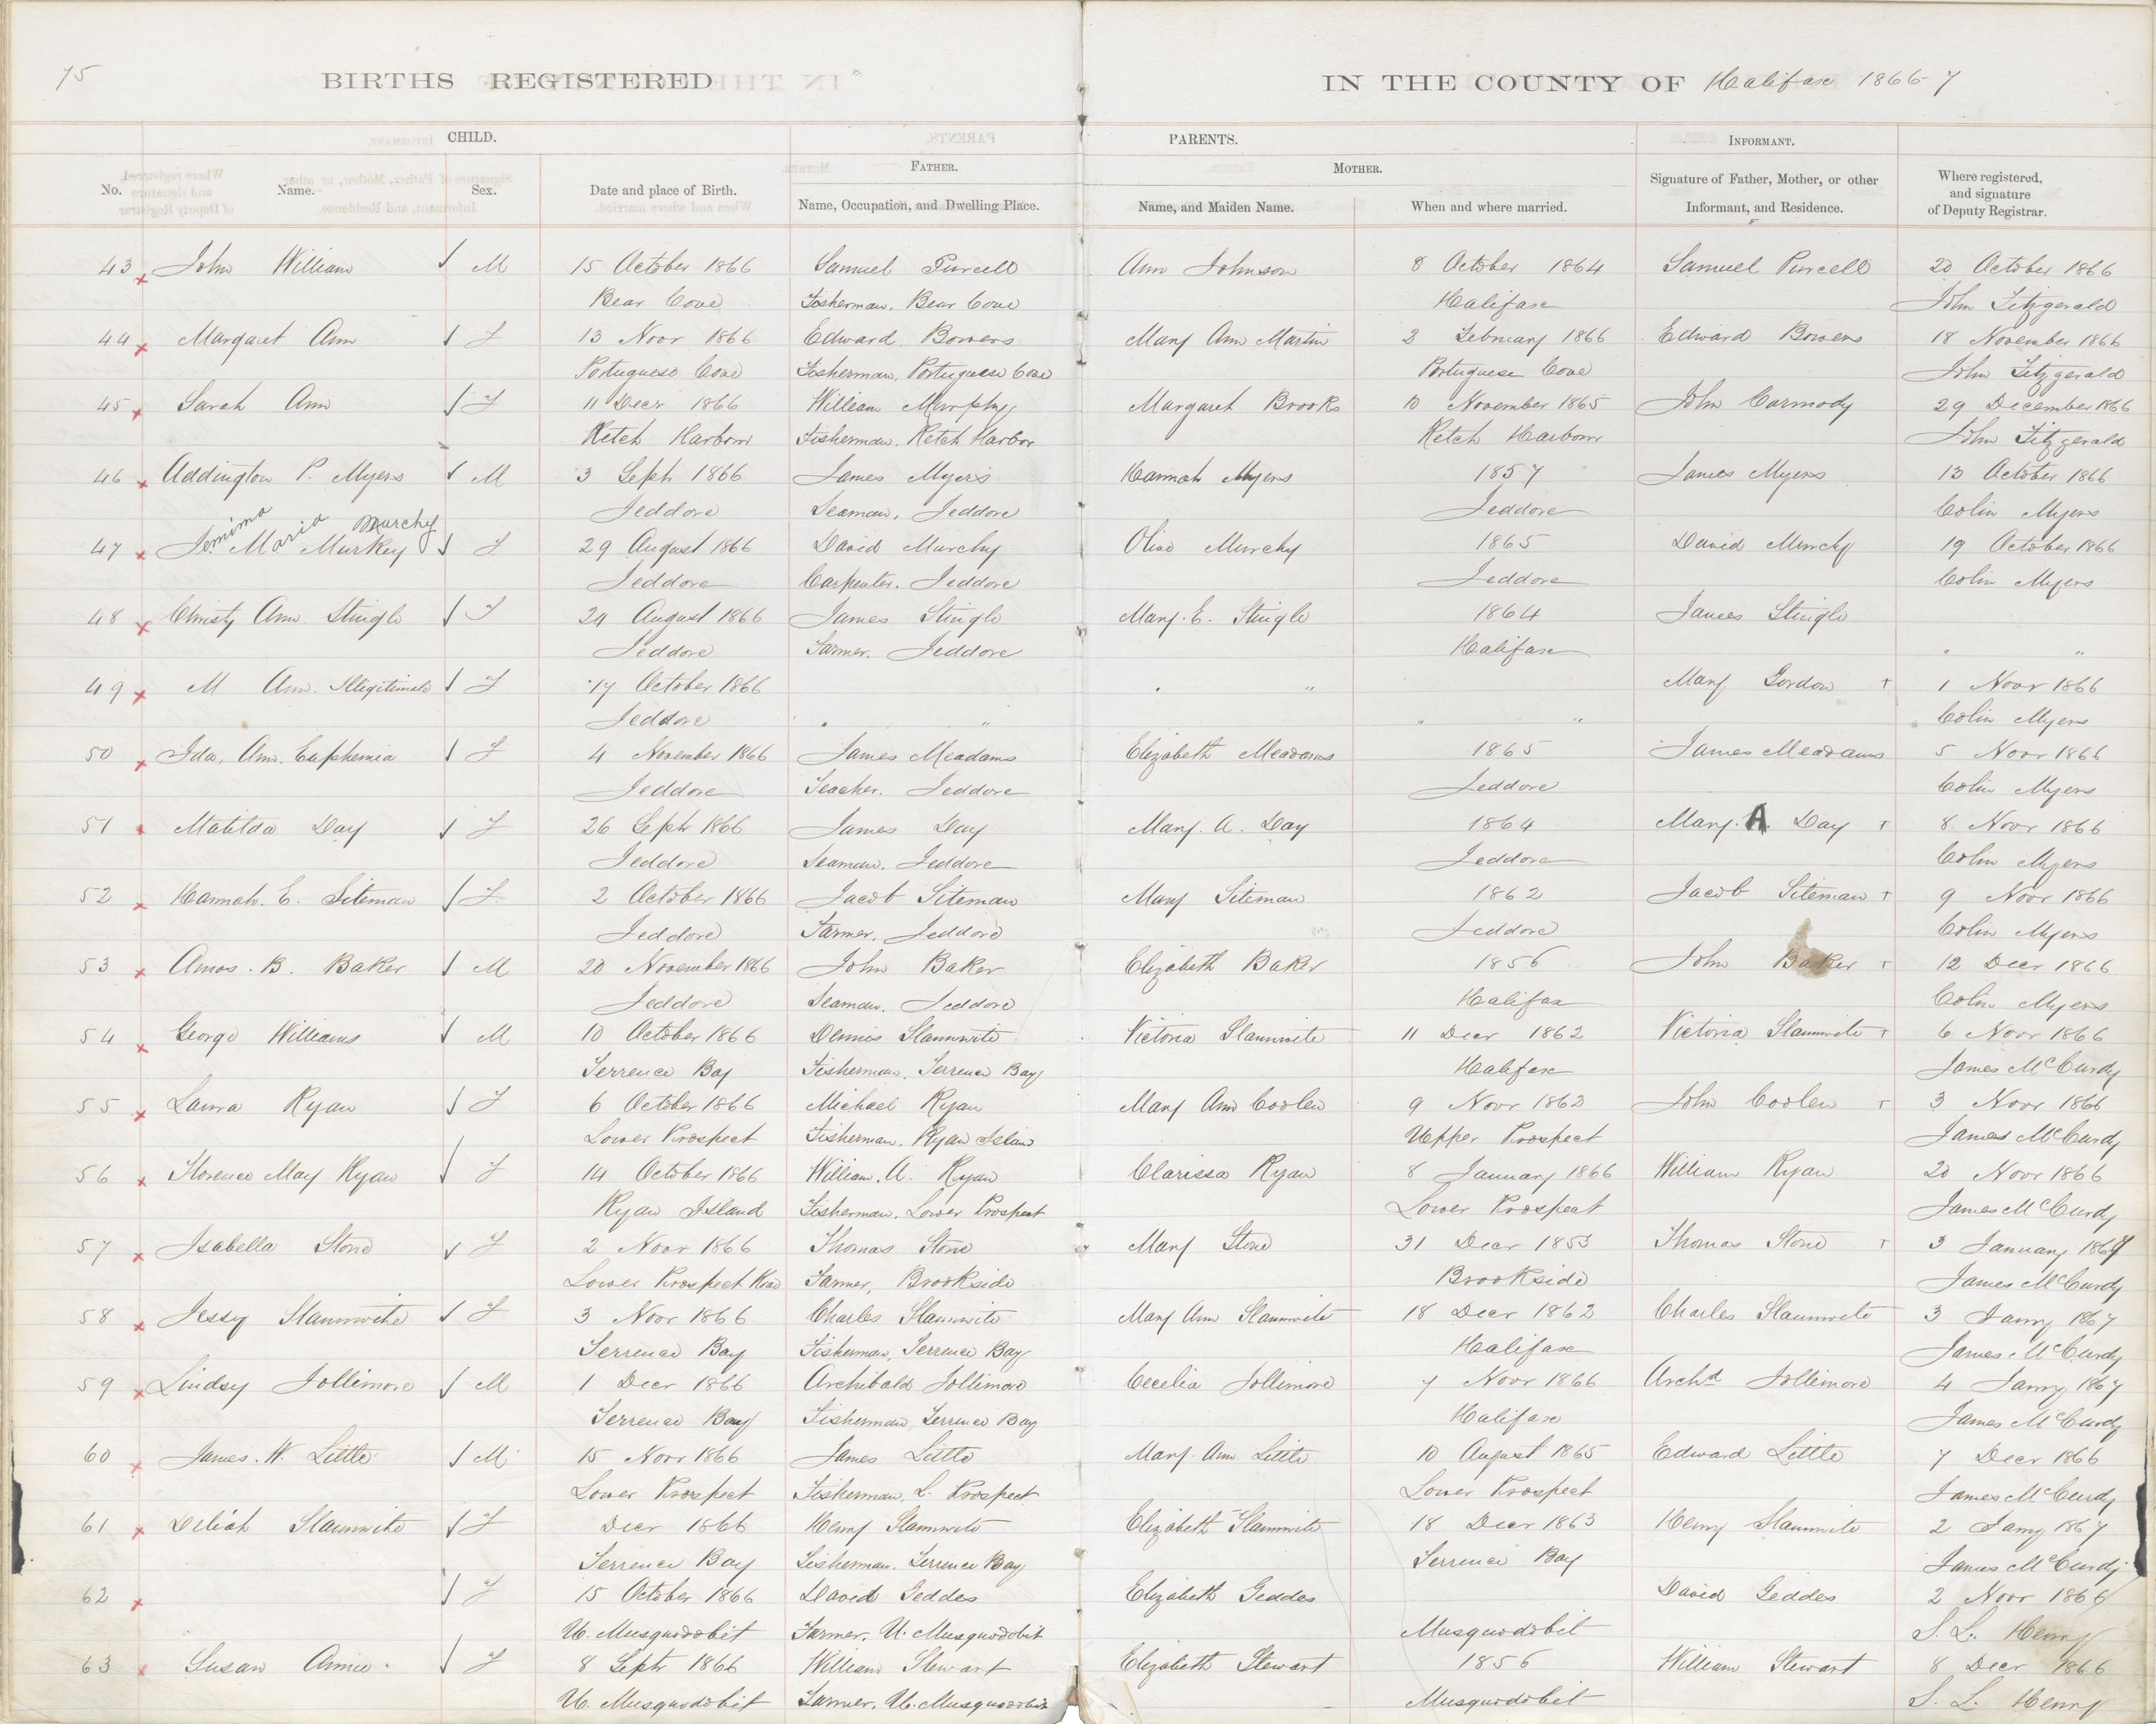 75
BIRTHS REGISTERED
IN THE COUNTY OF Halifax 1866-7
CHILD.
PARENTS.
INFORMANT.
FATHER.
MOTHER.
No.
Name.
Sex.
Date and place of Birth.
Name, Occupation, and Dwelling Place.
Name, and Maiden Name.
When and where married.
Signature of Father, Mother, or other
Informant, and Residence.
Where registered,
and signature
of Deputy Registrar.
43 x John William √ M 15 October 1866 Samuel Purcell Ann Johnson 8 October 1864 Samuel Purcell 20 October 1866
Bear Cove Fisherman, Bear Cove Halifax John Fitzgerald
44 x Margaret Ann √ F 13 Novr 1866 Edward Bowers Mary Ann Martin 3 February 1866 Edward Bowers 18 November 1866
Portuguese Cove Fisherman, Portuguese Cove Portuguese Cove John Fitzgerald
45 x Sarah Ann √ F 11 Decr 1866 William Murphy Margaret Brooks 10 November 1865 John Carmody 29 December 1866
Ketch Harbour Fisherman, Ketch Harbor Ketch Harbour John Fitzgerald
46 x Addington P. Myers √ M 3 Sept 1866 James Myers Hannah Myers 1857 James Myers 13 October 1866
Jeddore Seaman, Jeddore Jeddore Colin Myers
Murchy
47 x Jemima Maria Murkey √ F 29 August 1866 David Murchy Olive Murchy 1865 David Murchy 19 October 1866
Jeddore Carpenter. Jeddore Jeddore Colin Myers
48 x Christy Ann Stingle √ F 24 August 1866 James Stingle Mary. E. Stingle 1864 James Stingle
Jeddore Farmer. Jeddore Halifax " "
49 x M Ann. Illegitimate √ F 17 October 1866 " " Mary Gordon + 1 Novr 1866
Jeddore " " " " Colin Myers
50 x Ida. Ann. Euphemia √ F 4 November 1866 James Meadams Elizabeth Meadams 1865 James Meadams 5 Novr 1866
Jeddore Teacher. Jeddore Jeddore Colin Myers
51 x Matilda Day √ F 26 Sept 1866 James Day Mary. A. Day 1864 Mary. A. Day + 8 Novr 1866
Jeddore Seaman. Jeddore Jeddore Colin Myers
52 x Hannah. E. Siteman √ F 2 October 1866 Jacob Siteman Mary Siteman 1862 Jacob Siteman + 9 Novr 1866
Jeddore Farmer. Jeddore Jeddore Colin Myers
53 x Amos. B. Baker √ M 20 November 1866 John Baker Elizabeth Baker 1856 John Baker + 12 Decr 1866
Jeddore Seaman. Jeddore Halifax Colin Myers
54 x George Williams √ M 10 October 1866 Dennis Slaunwite Victoria Slaunwite 11 Decr 1862 Victoria Slaunwite + 6 Novr 1866
Terrence Bay Fisherman. Terrence Bay Halifax James McCurdy
55 x Laura Ryan √ F 6 October 1866 Michael Ryan Mary Ann Coolen 9 Novr 1862 John Coolen + 3 Novr 1866
Lower Prospect Fisherman. Ryan Islan Upper Prospect James McCurdy
56 x Florence May Ryan √ F 14 October 1866 William. A. Ryan Clarissa Ryan 8 January 1866 William Ryan 20 Novr 1866
Ryan Island Fisherman. Lower Prospect Lower Prospect James McCurdy
57 x Isabella Stone √ F 2 Novr 1866 Thomas Stone Mary Stone 31 Decr 1853 Thomas Stone + 3 January 1867
Lower Prospect Road Farmer, Brookside Brookside James McCurdy
58 x Jessy Slaunwite √ F 3 Novr 1866 Charles Slaunwite Mary Ann Slaunwite 18 Decr 1862 Charles Slaunwite 3 Jany 1867
Terrence Bay Fisherman, Terrence Bay Halifax James McCurdy
59 x Lindsy Jollimore √ M 1 Decr 1866 Archibald Jollimore Cecelia Jollimore 7 Novr 1866 Archd Jollimore 4 Jany 1867
Terrence Bay Fisherman, Terrence Bay Halifax James McCurdy
60 x James. W. Little √ M 15 Novr 1866 James Little Mary Ann Little 10 August 1865 Edward Little 7 Decr 1866
Lower Prospect Fisherman, L. Prospect Lower Prospect James McCurdy
61 x Deliah Slaunwite √ F Decr 1866 Henry Slaunwite Elizabeth Slaunwite 18 Decr 1863 Henry Slaunwite 2 Jany 1867
Terrence Bay Fisherman. Terrence Bay Terrence Bay James McCurdy
62 x √ F 15 October 1866 David Geddes Elizabeth Geddes David Geddes 2 Novr 1866
U. Musquodobit Farmer. U. Musquodobit Musquodobit S. L. Henry
63 x Susan Annie √ F 8 Septr 1866 William Stewart Elizabeth Stewart 1856 William Stewart 8 Decr 1866
U. Musquodobit Farmer, U. Musquodobit Musquodobit S. L. Henry